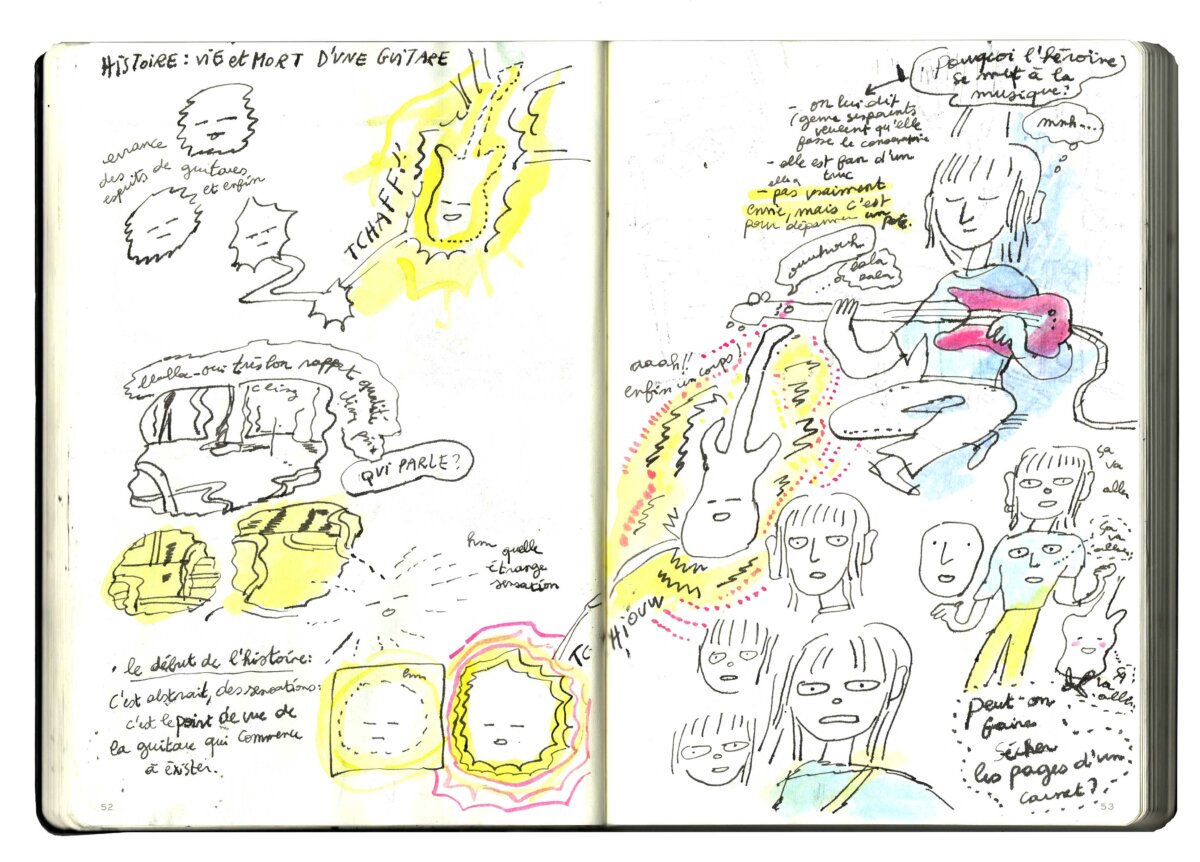 HISTOIRE : VIE et MORT D'UNE GUITARE
errance
des
esprits de guitares
et enfin
TCHAFF!!
blabla - oui très bon rapport qualité
prix
cling
QUI PARLE ?
hm quelle
étrange
sensation
. le début de l'histoire :
C'est abstrait, des sensations :
c'est le point de vue de
la guitare qui commence
à exister.
hm
52
Pourquoi l'héroïne
se met à la
musique ?
- on lui dit
veulent qu'elle
passe le conservatoire
- elle est fan d'un
truc
- pas vraiment
envie, mais c'est
pour dépanner un pote.
mnh...
ouuhouh
lala
lala
aaah!!
enfin un corps!
HIOUW
ça
va
aller
ça
va
aller
ça
va
aller
Peut-on
faire
sécher
les pages d'un
carnet ?
53